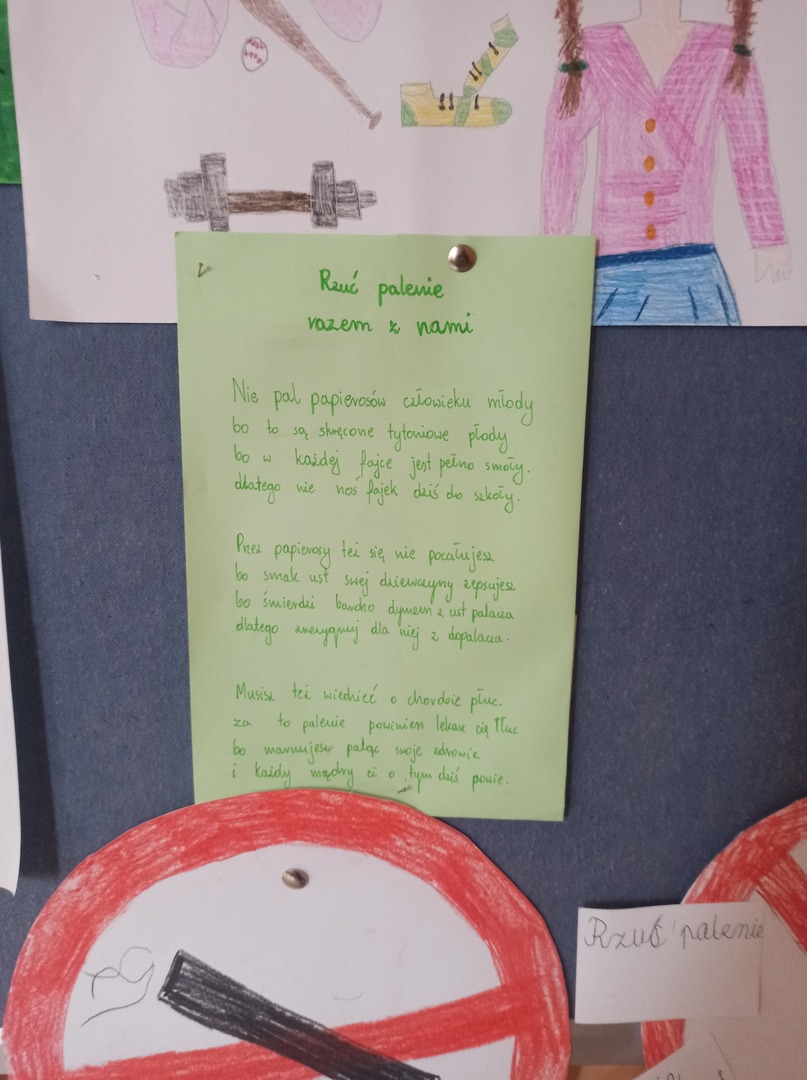 Rzuć palenie
razem z nami
Nie pal papierosów człowieku młody
bo to są skręcone tytoniowe płody
bo w każdej fajce jest pełno smoły.
dlatego nie noś fajek dziś do szkoły.
Przez papierosy też się nie pocałujesz
bo smak ust swej dziewczyny zepsujesz
bo śmierdzi bardzo dymem z ust palacza
dlatego zrezygnuj dla niej z dopalacza.
Musisz też wiedzieć o chorobie płuc.
za to palenie powinien lekarz cię tłuc
bo marnujesz paląc swoje zdrowie
i każdy mądry ci o tym dziś powie.
Rzuć palenie